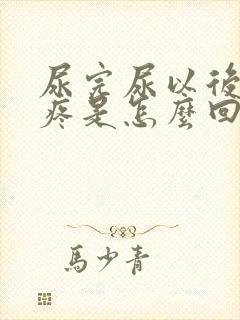 尿完尿以後
疼是怎麼回
馬少青